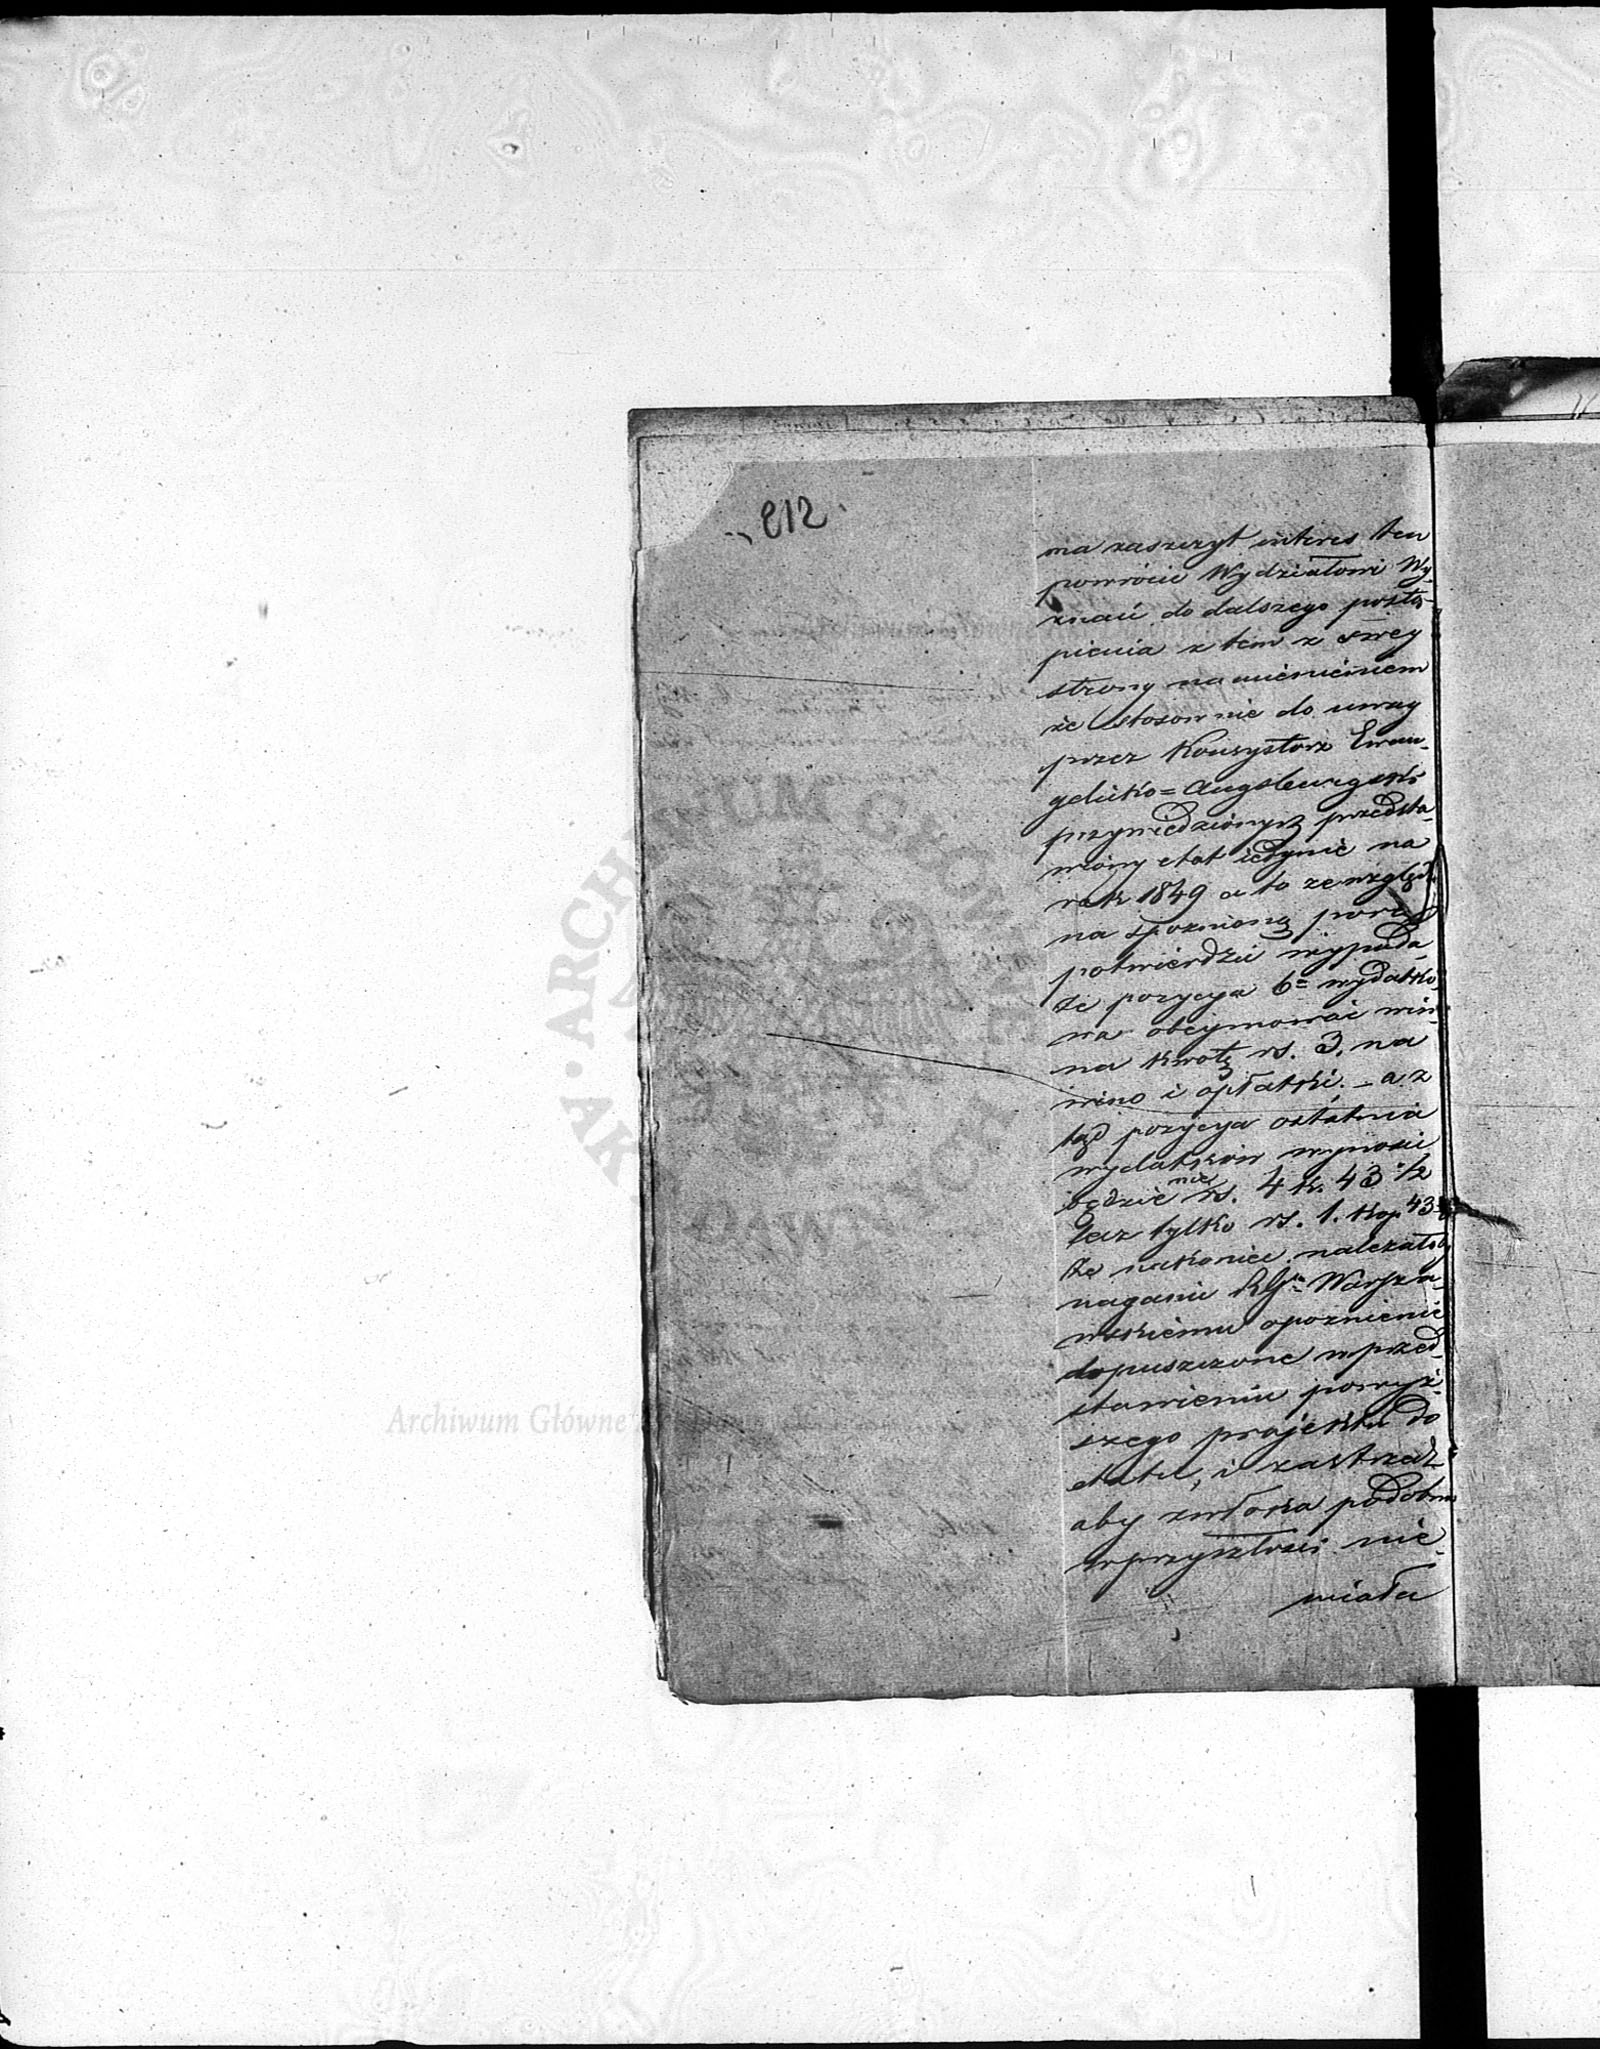 212
ma zaszczyt interes ten
powrócić Wydziałowi Wy-
znań do dalszego postą-
pienia z tem z swey
strony namienieniem
że stosownie do uwag
przez Konsystorz Ewan-
gelicko=Augsburgski
przywiedzionych przedsta-
wiony etat iedynie na
rok 1849 a to ze względu
na spoźnioną porę
potwierdzić wypada
że pozycya 6ª wydatko-
wa obeymować win-
na kwotę rs. 3. na
wino i opłatki. – a z
tąd pozycya ostatnia
wydatków wynosić
będzie nie rs. 4 k. 43 ½
lecz tylko rs. 1. kop. 43 ½
że nakoniec należałoby
naganić Warsza-
wskiemu opoźnienie
dopuszczone w przed-
stawieniu powyż-
szego projektu do
etatu, i zastrzedz
aby zwłoka podobna
w przyszłości nie-
miała
ARCHIWUM GŁÓWNE AKT DAWNYCH
Archiwum Główne